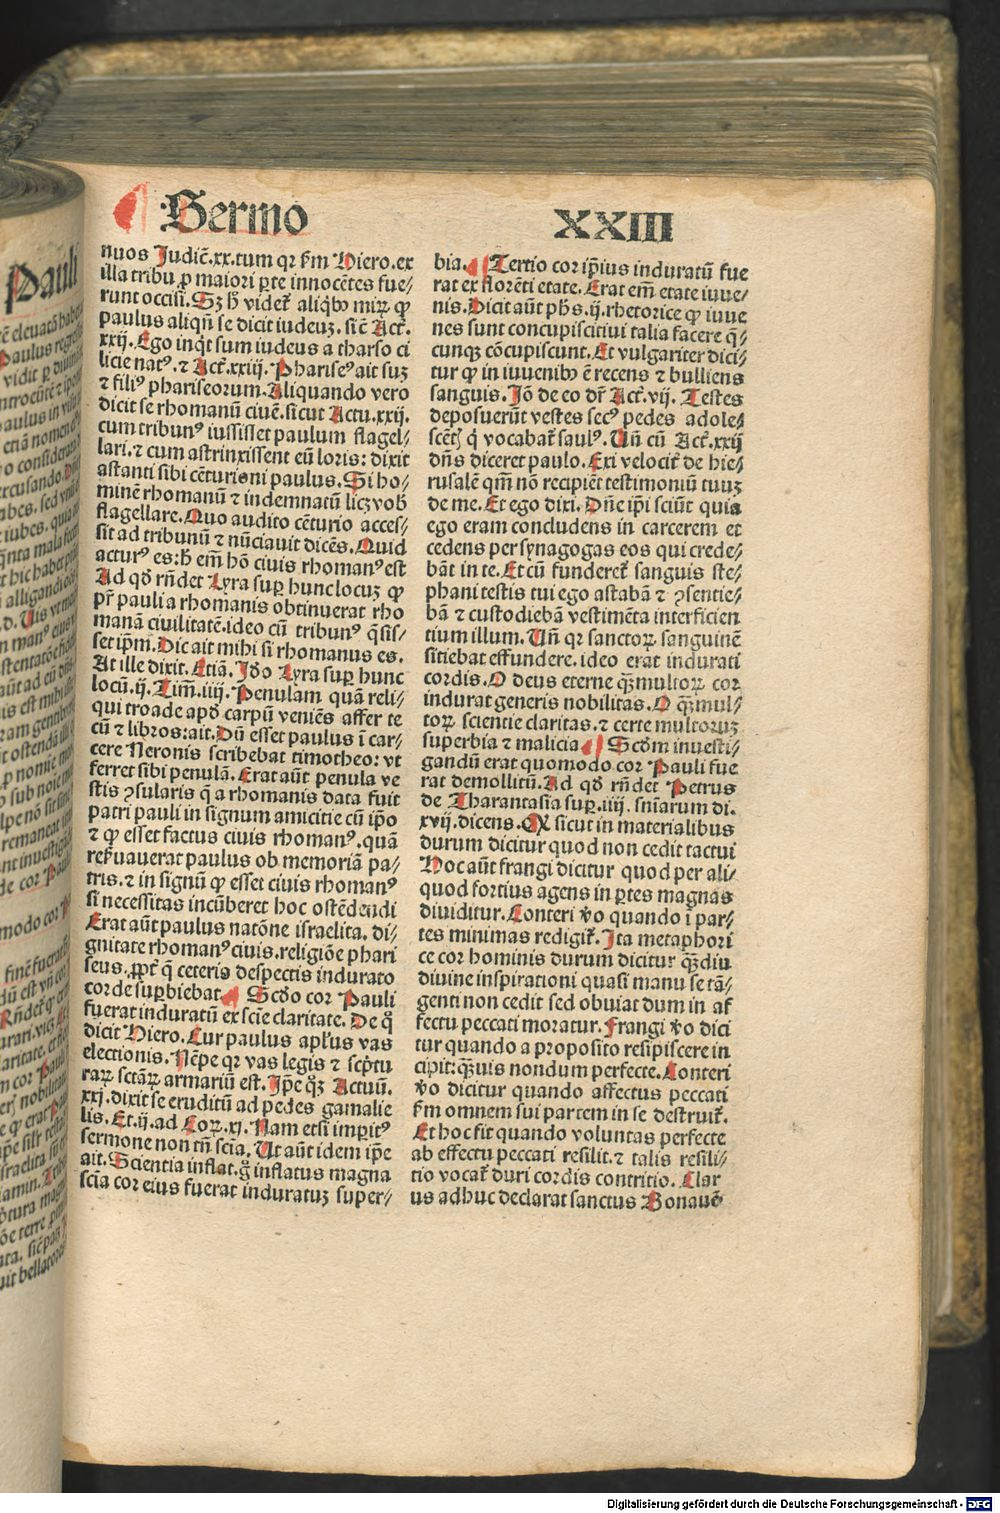 Sermo XXIII
nuos Judic̄.xx.tum qr ẜm Hiero.ex
illa tribu ꝑ maiori ꝑte innocētes fue⸗
runt occisi. Sꝫ h̄ videt᷑ aliq̇bꝰ miꝝ ꝙ
paulus aliqn̄ se dicit iudeuꝫ. sic̄ Act᷑.
xxij. Ego inq̇t sum iudeus a tharso ci
licie natꝰ. ⁊ Act᷑.xxiij. Phariseꝰ ait suꝫ
⁊ filiꝰ phariseorum. Aliquando vero
dicit se rhomanū ciuē. sicut Actu.xxij.
cum tribunꝰ iussisset paulum flagel⸗
lari. ⁊ cum astrinxissent eū loris: dixit
astanti sibi cēturioni paulus. Si ho⸗
minē rhomanū ⁊ indemnatū licꝫ vob̄
flagellare. Quo audito cēturio acces⸗
sit ad tribunū ⁊ nūciauit dicēs. Quid
acturꝰ es: h̄ em̄ hō ciuis rhomanꝰ est
Ad qd̄ rn̄det Lyra suꝑ hunc locuꝫ ꝙ
pr̄ pauli a rhomanis obtinuerat rho
manā ciuilitatē. ideo cū tribunꝰ q̄sis⸗
set ip̄m. Dic ait mihi si rhomanus es.
At ille dixit. Etiā. Jdo Lyra suꝑ hunc
locū.ij. Tim̄.iiij. Penulam quā reli⸗
qui troade apd̄ carpū veniēs affer te
cū ⁊ libros: ait. Dū esset paulus ī car⸗
cere Neronis scribebat timotheo: vt
ferret sibi penulā. Erat aūt penula ve
stis ꝯsularis q̄ a rhomanis data fuit
patri pauli in signum amicitie cū ip̄o
⁊ ꝙ esset factus ciuis rhomanꝰ. quā
reẜuauerat paulus ob memoriā pa⸗
tris. ⁊ in signū ꝙ esset ciuis rhomanꝰ
si necessitas incūberet hoc ostēdendi
Erat aūt paulus natōne israelita. di⸗
gnitate rhomanꝰ ciuis. religiōe phari
seus. ꝓpt᷑ q̄ ceteris despectis indurato
corde suꝑbiebat. ¶ Scd̄o cor Pauli
fuerat induratū ex scīe claritate. De q̊
dicit Hiero. Cur paulus apl̄us vas
electionis. Nēpe qr vas legis ⁊ sc̄ptu
raꝝ sctāꝝ armariū est. Jp̄e q̊ꝫ Actuū.
xxj. dixit se eruditū ad pedes gamalie
lis. Et.ij. ad Coꝝ.xj. Nam etsi imꝑitꝰ
sermone non tn̄ scīa. Ut aūt idem ip̄e
ait. Scientia inflat. g̊ inflatus magna
scīa cor eius fuerat induratuꝫ super⸗
bia. ¶ Tertio cor ip̄ius induratū fue
rat ex florēti etate. Erat em̄ etate iuue⸗
nis. Dicit aūt phs̄.ij. rhetorice ꝙ iuue
nes sunt concupiscitiui talia facere q̄⸗
cunqꝫ cōcupiscunt. Et vulgariter dici⸗
tur ꝙ in iuuenibꝰ ē recens ⁊ bulliens
sanguis. Jō de eo dr̄ Act᷑.vij. Testes
deposuerūt vestes secꝰ pedes adole⸗
scēt q̇ vocabat᷑ saulꝰ. Uñ cū Act᷑.xxij
dn̄s diceret paulo. Exi velocit᷑ de hie⸗
rusalē qm̄ nō recipiēt testimoniū tuuꝫ
de me. Et ego dixi. Dn̄e ip̄i sciūt quia
ego eram concludens in carcerem et
cedens per synagogas eos qui crede⸗
bāt in te. Et cū funderet᷑ sanguis ste⸗
phani testis tui ego astabā ⁊ ꝯsentie⸗
bā ⁊ custodiebā vestimēta interficien
tium illum. Uñ qr sanctoꝝ sanguinē
sitiebat effundere. ideo erat indurati
cordis. O deus eterne q̄ꝫ multoꝝ cor
indurat generis nobilitas. O q̄ꝫ mul⸗
toꝝ scientie claritas. ⁊ certe multoruꝫ
superbia ⁊ malicia ¶ Scd̄m inuesti⸗
gandū erat quomodo cor Pauli fue
rat demollitū. Ad qd̄ rn̄det Petrus
de Tharantasia suꝑ.iiij. sn̄iarum di.
xvij. dicens. Ꝙ sicut in materialibus
durum dicitur quod non cedit tactui
Hoc aūt frangi dicitur quod per ali⸗
quod fortius agens in ꝑtes magnas
diuiditur. Conteri v̊o quando ī par⸗
tes minimas redigit᷑. Jta metaphori
ce cor hominis durum dicitur q̄ꝫdiu
diuine inspirationi quasi manu se tā⸗
genti non cedit sed obuiat dum in af
fectu peccati moratur. Frangi v̊o dici
tur quando a proposito resipiscere in
cipit: q̄ꝫuis nondum perfecte. Conteri
v̊o dicitur quando affectus peccati
ẜm omnem sui partem in se destruit᷑.
Et hoc fit quando voluntas perfecte
ab effectu peccati resilit. ⁊ talis resili⸗
tio vocat᷑ duri cordis contritio. Clar
us adhuc declarat sanctus Bonauē
Pauli
Digitalisierung gefördert durch die Deutsche Forschungsgemeinschaft - DFG